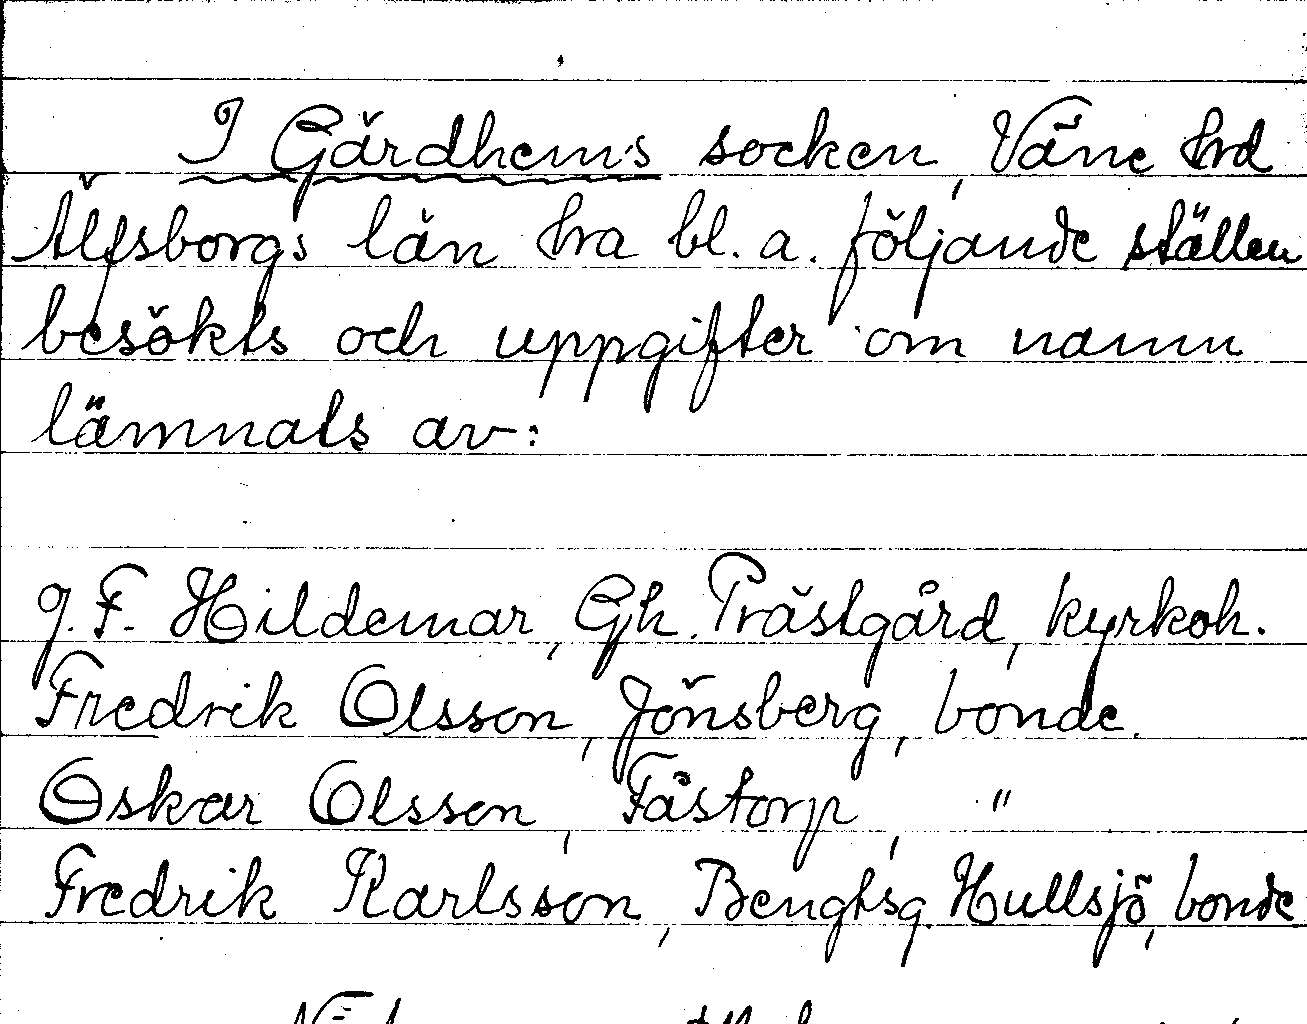 I Gärdhems socken, Väne hrd
Älfsborgs län ha bl. a. följande ställen
besökts och uppgifter om namn
lämnats av:
J. F. Hildemar, Gh. Prästgård, kyrkoh.
Fredrik Olsson, Jönsberg, bonde.
Oskar Olsson, Fåstorp, "
Fredrik Karlsson, Bengtsg. Hullsjö, bonde